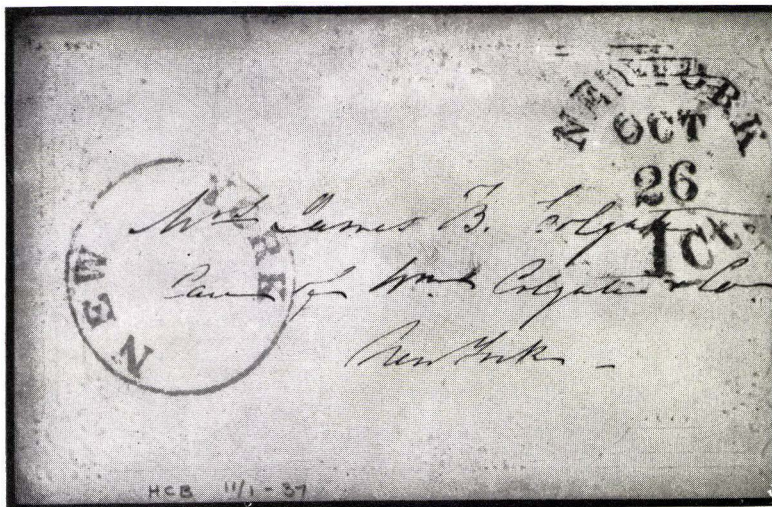 NEW YORK
OCT
26
1 ct.
NEW YORK
Mrs James B. Colgate
Care of Wm Colgate & Co
New York -
HCB 11/1-37